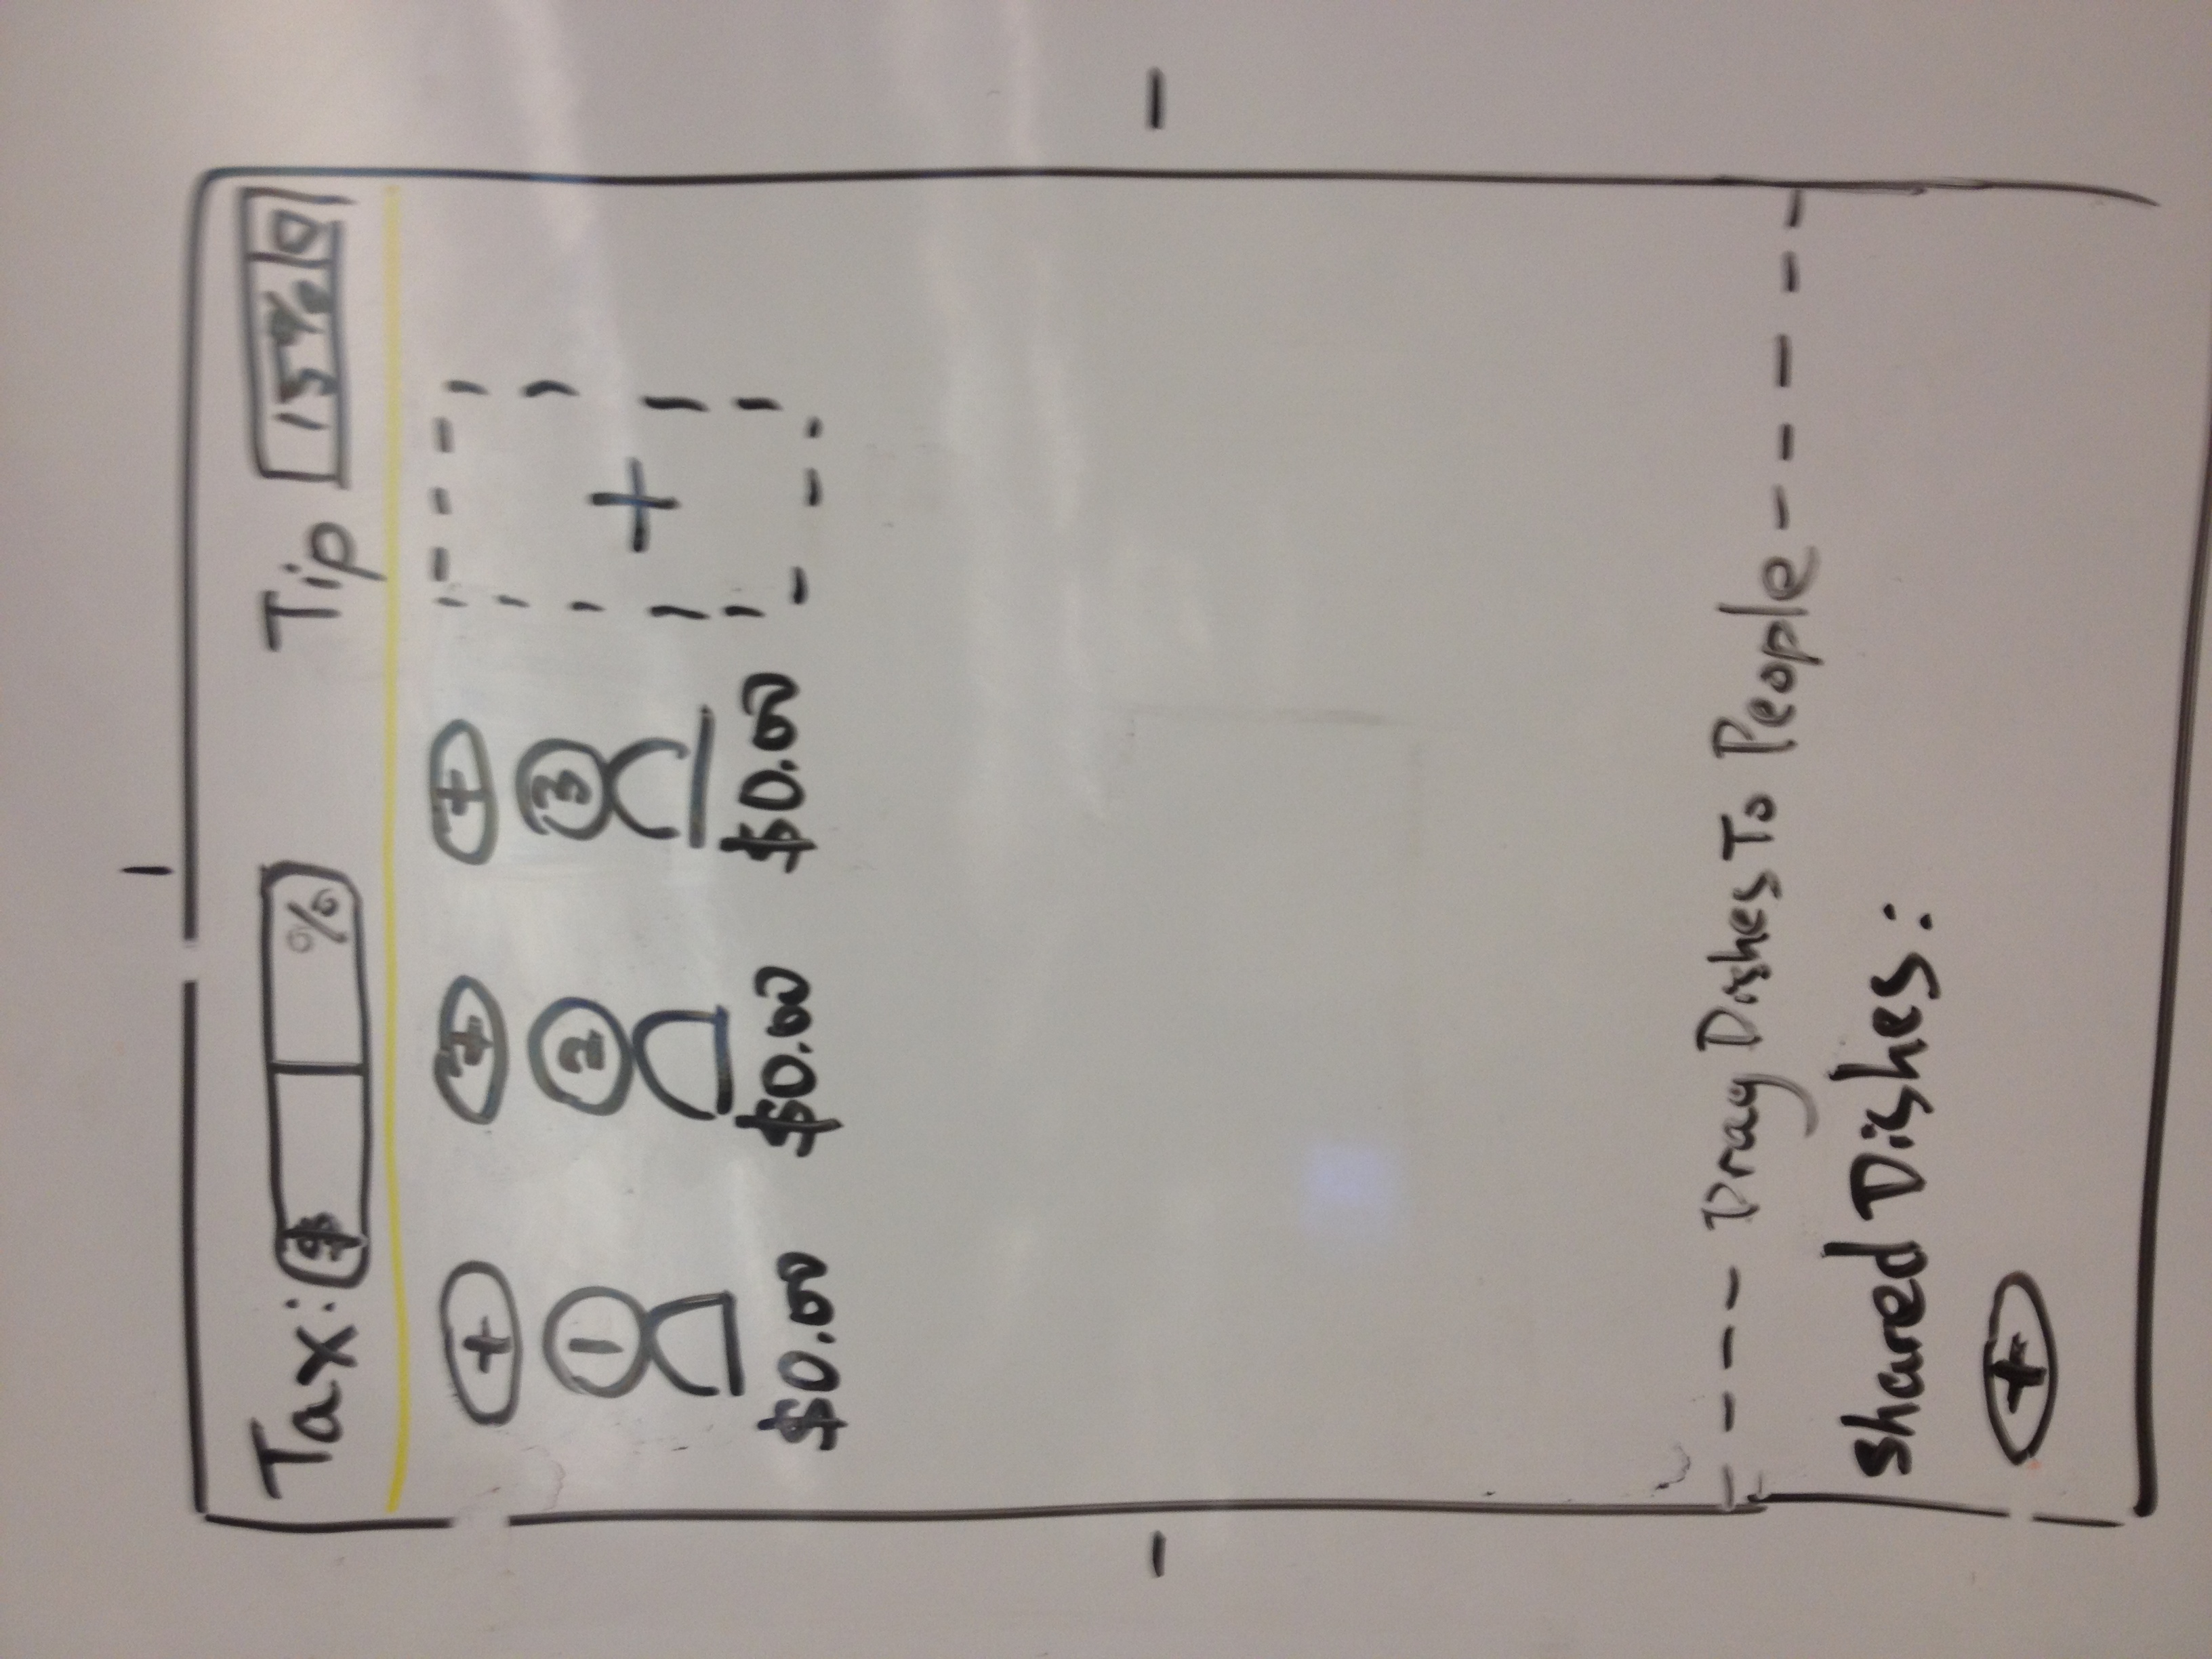 Tax: $ % Tip 15%
+ + +
1 2 3 +
$0.00 $0.00 $0.00
Drag Dishes To People
Shared Dishes:
+